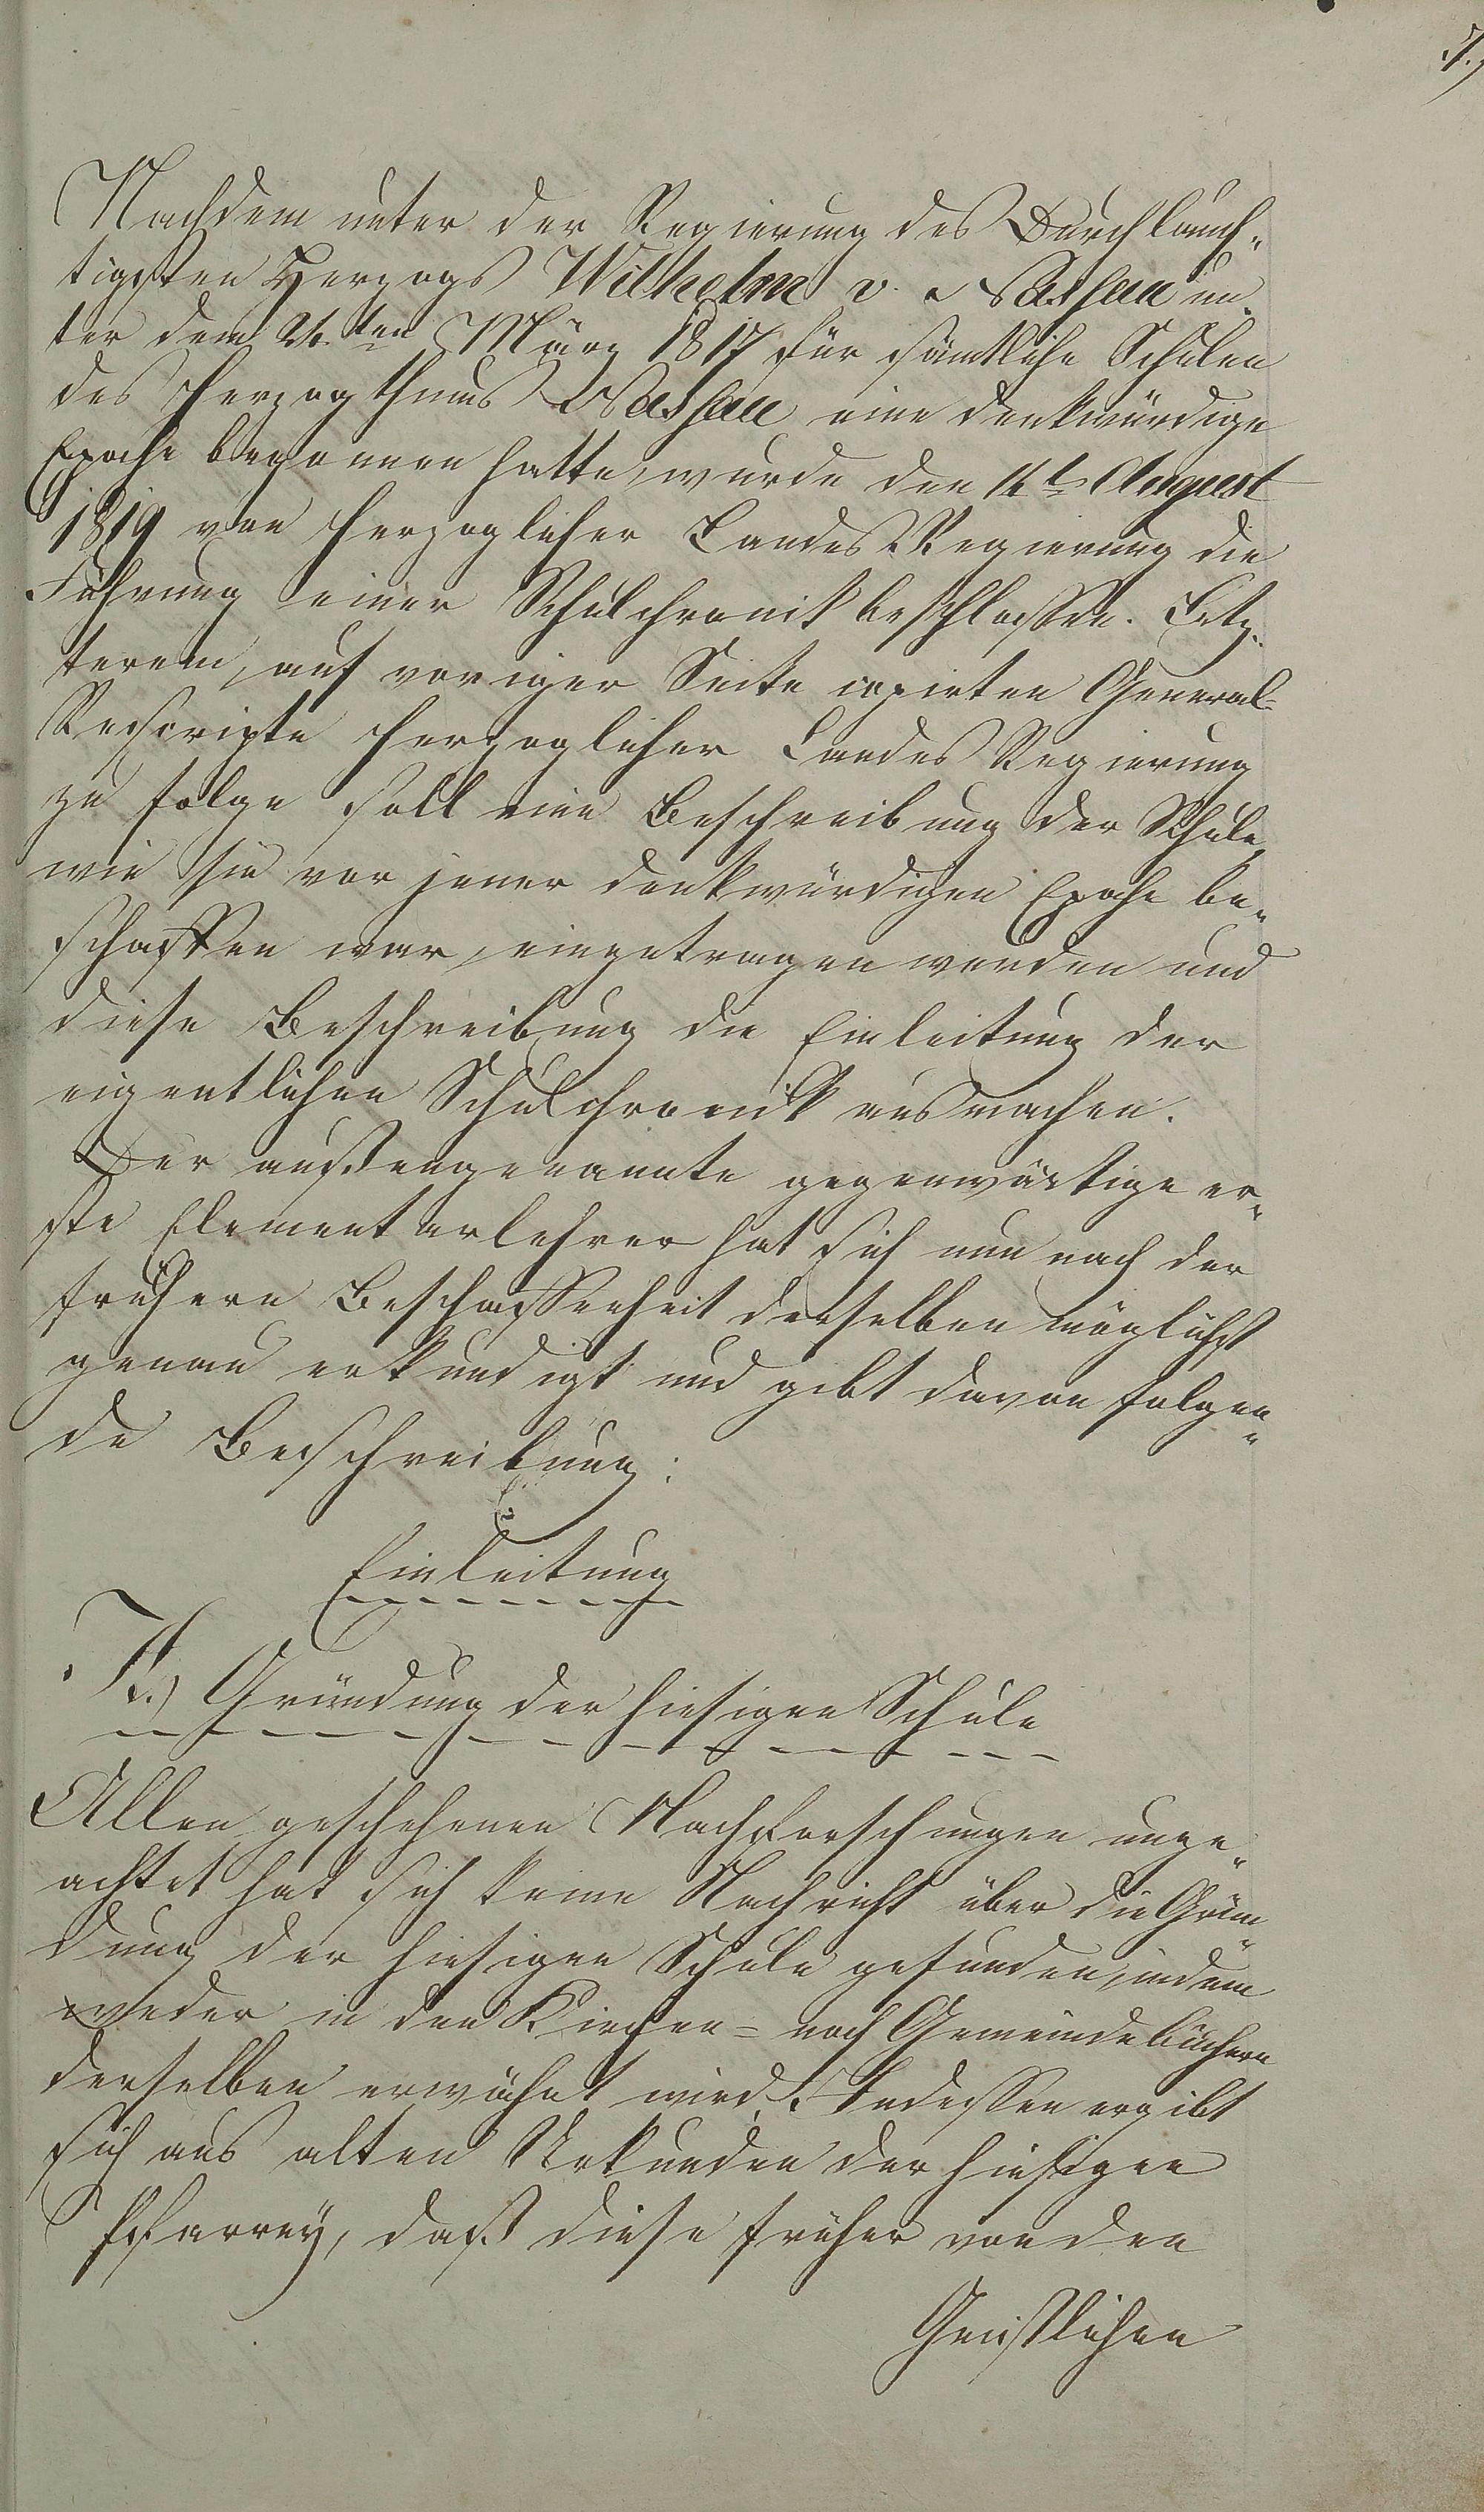 Nachdem unter der Regierung des Durchlauch¬
tigsten Herzogs Wilhelm v. Nassau un¬
ter dem 24ten März 1817 für sämtliche Schulen
des Herzogthums Nassau eine denkwürdige
Epoche begonnen hatte, wurde den 14t August
1819 von Herzoglicher Landes Regierung die
Führung einer Schulchronik beschlossen. Letz¬
terem, auf voriger Seite copirten General-
Rescripte Herzoglicher Landes Regierung
zu Folge soll eine Beschreibung der Schule,
wie sie vor jener denkwürdigen Epoche be¬
schaffen war, eingetragen werden und
diese Beschreibung die Einleitung der
eigentlichen Schulchronik ausmachen.
Der außengenannte gegenwärtige er¬
ste Elementarlehrer hat sich nun nach der
frühern Beschaffenheit derselben möglichst
genau erkundigt und gibt davon folgen¬
de Beschreibung:
Einleitung
Gründung der hiesigen Schule
Allen geschehenen Nachforschungen unge¬
achtet hat sich keine Nachricht über die Grün¬
dung der hiesigen Schule gefunden, indem
weder in den Kirchen- noch Gemeindebüchern
derselben erwähnt wird. Indessen ergibt
sich aus alten Urkunden der hiesigen
Pfarrey, daß diese früher von den
Geistlichen